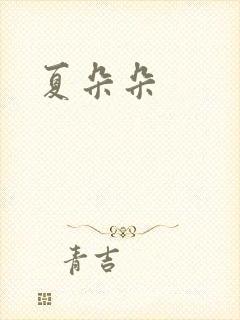 夏朵朵
青吉